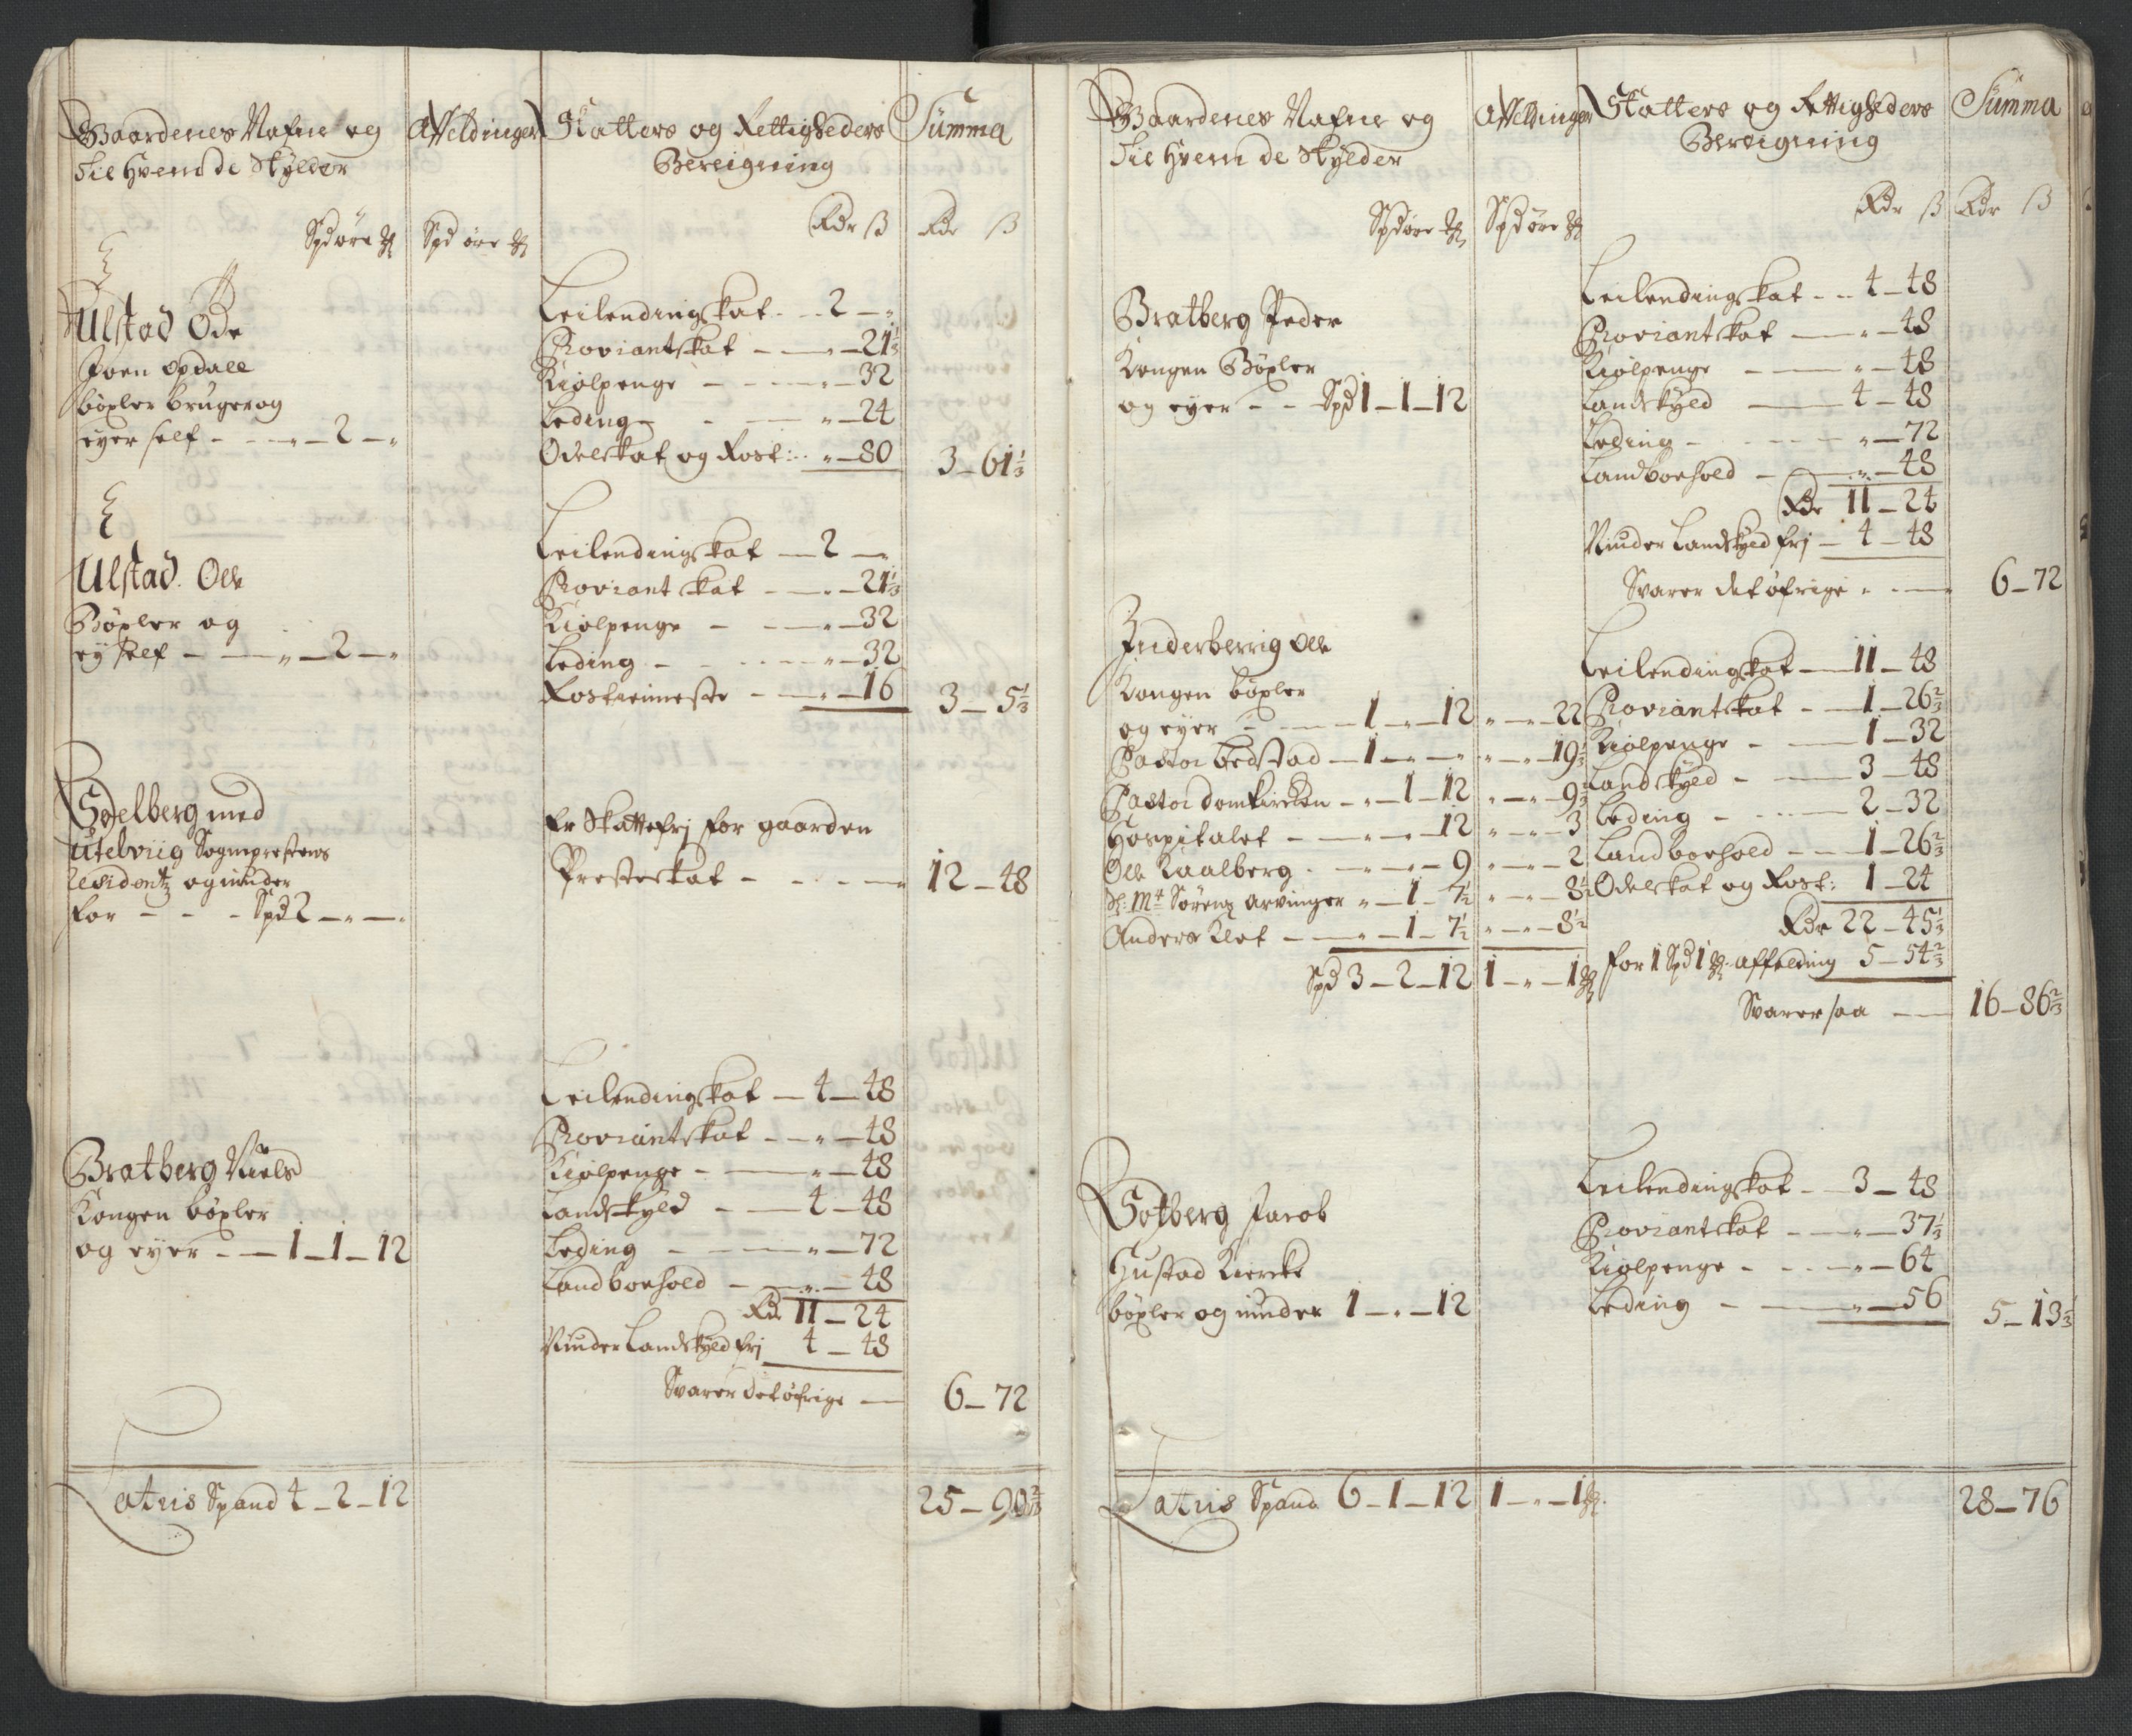 Gaardenes Nafne og
Til Hvem de Skylder
Affeldinger
Skatters og Rettigheders
Bereigning
Summa
Spd øre
Spd øre
Rdr ß
Rdr ß
Ulstad Ode
Joen Opdall
böxler bruger og
eyer self - - - „ - 2 - „
Leilendingskat - - 2 - „
Proviantskat - - „ - 21⅓
Kiølpenge - - - „ - 32
Leding - - - „ - 24
Odelskat og Rost: - „ - 80
3 - 61⅓
Ulstad Ole
Böxler og
ey self - - „ - 2 - „
Leilendingskat - 2 - „
Proviantskat - - „ - 21⅓
Kiølpenge - - „ - 32
Leding - - - „ - 32
Rostieneste - - „ - 16
3 - 5⅓
Saxelberg med
Utebviig Sogneprestens
Residentz og under
for - - - Spd 2 - „ - „
Er Skattefrj for gaarden
Presteskat - - - - „
12 - 48
Bratberg Niels
Kongen böxler
og eyer - - 1 - 1 - 12
Leilendingskat - 4 - 48
Proviantskat - - „ - 48
Kiølpenge - - „ - 48
Landskyld - - 4 - 48
Leding - - - „ - 72
Landboehold - - „ - 48
Rdr 11 - 24
Niuder Landskyld frj 4 - 48
Svarer det øfrige -
6 - 72
Latus Spand 4 - 2 - 12
25 - 90⅔
Gaardenes Nafne og
Til Hvem de Skylder
Affeldinger
Skatters og Rettigheders
Bereigning
Summa
Spd øre
Spd øre
Rdr ß
Rdr ß
Bratberg Peder
Kongen Böxler
og eyer - - Spd 1 - 1 - 12
Leilendingskat - - 4 - 48
Proviantskat - - „ - 48
Kiølpenge - - „ - 48
Landskyld - 4 - 48
Leding - - - - „ - 72
Landboehold - - „ - 48
Rdr 11 - 24
Niuder Landskyld frj - 4 - 48
Svarer det øfrige „ - - „
6 - 72
Inderberrig Ole
Kongen böxler
og eyer - - 1 - „ - 12 „ - „ - 22
Pastor Bedstad - 1 - „ - „ „ - „ - 19½
Pastor domkircken - „ - 1 - 12 „ - „ - 9½
Hospitalet - - „ - „ - 12 „ - „ - 3
Ole Kaalberg - - „ - „ - 9 „ - „ - 2
Sl: Mr Sørens Arvinger „ - 1 - 7½ „ - „ - 8½
Anders Klot - - „ - 1 - 7½ „ - „ - 8½
Spd 3 - 2 - 12 1 - „ - 1
Leilendingskat - 11 - 48
Proviantskat - - 1 - 26⅔
Kiølpenge - - 1 - 32
Landskyld - - 3 - 48
Leding - - - 2 - 32
Landboehold - - 1 - 26⅔
Odelskat og Rost: 1 - 24
Rdr 22 - 45⅓
for 1 Spd 1 affelding 5 - 54⅔
Svarer saa -
16 - 86⅔
Sotberg Jacob
Hustad Kiercke
böxler og niuder 1 - „ - 12
Leilendingskat - 3 - 48
Proviantskat - - „ - 37⅓
Kiølpenge - - - „ - 64
Leding - - „ - 56
5 - 13⅓
Latus Spand 6 - 1 - 12
1 - „ - 1
28 - 76